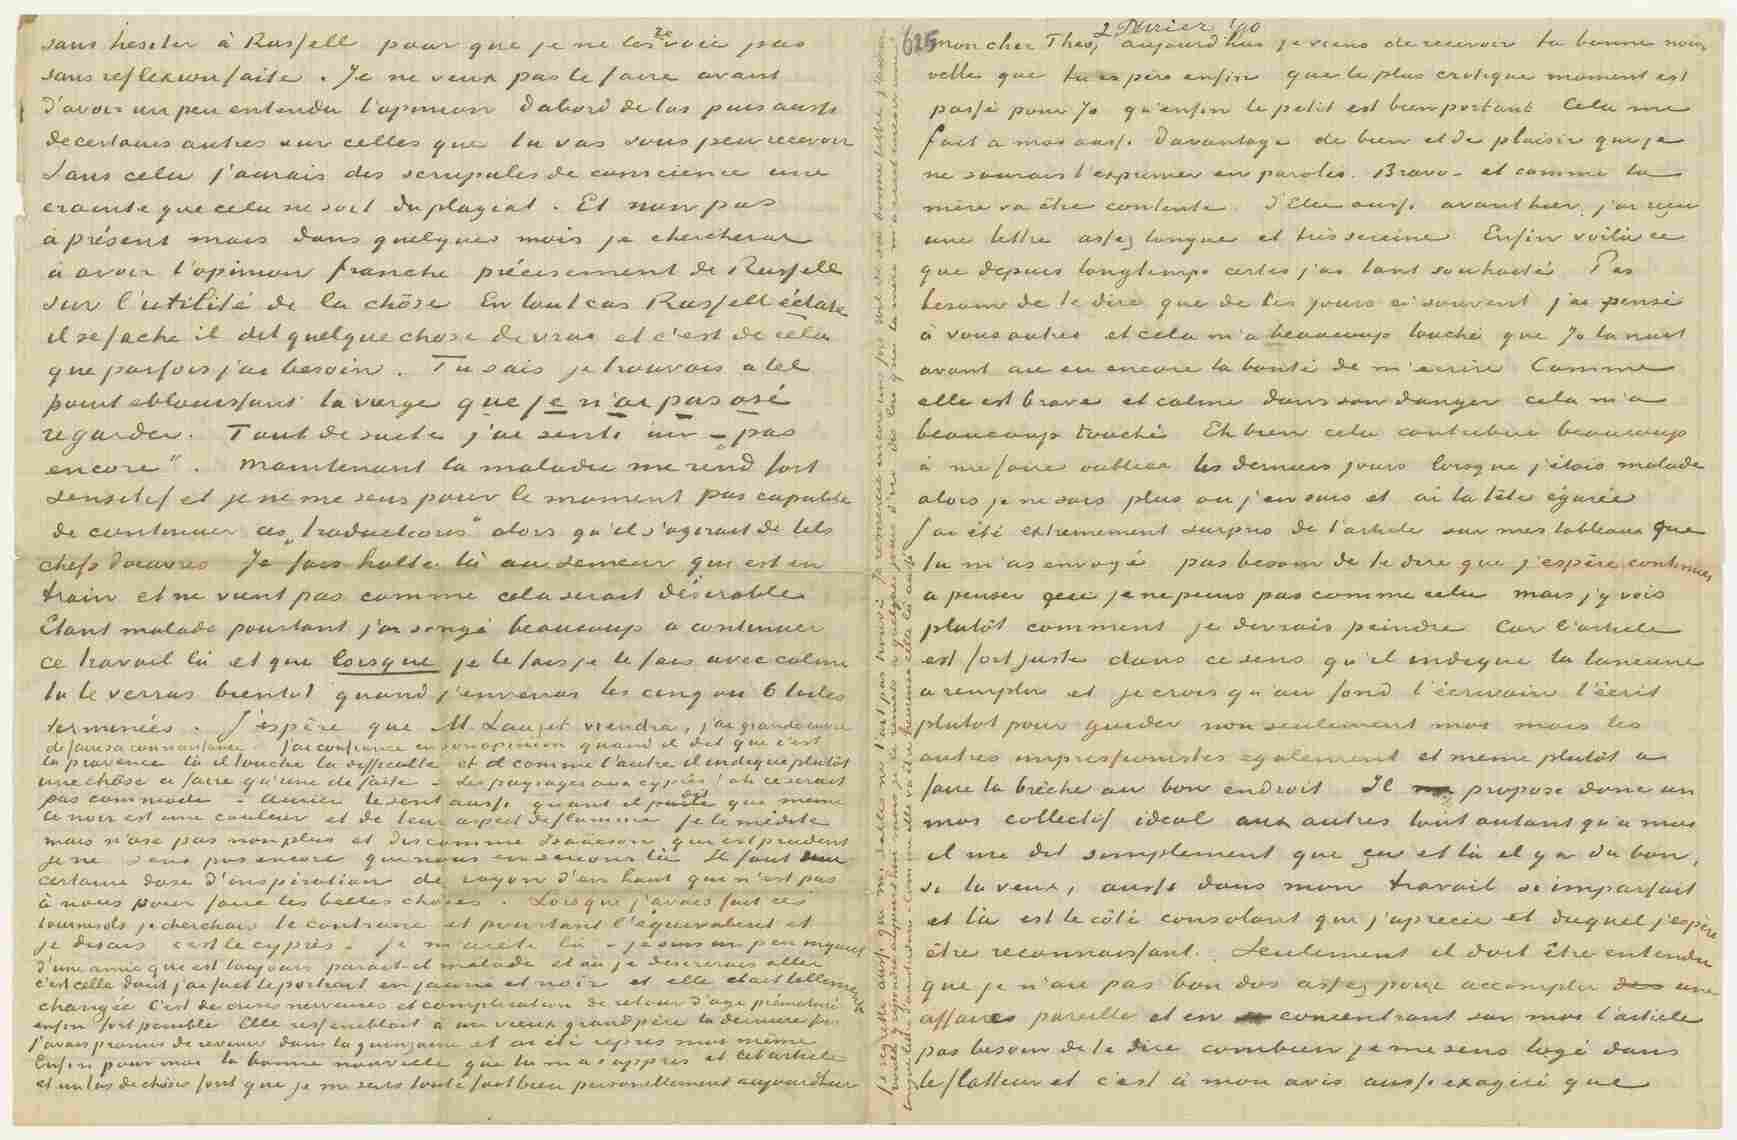 sans hésiter à Russell pour que je ne les revoie pas
sans reflexion faite. Je ne veux pas le faire avant
d'avoir un peu entendu l'opinion d'abord de toi puis aussi
de certains autres sur celles que tu vas sous peu recevoir
Sans cela j'aurais des scrupules de conscience une
crainte que cela ne soit du plagiat. Et non pas
à présent mais dans quelques mois je chercherai
à avoir l'opinion franche précisement de Russell
sur l'utilité de la chôse En tout cas Russell éclate
il se fache il dit quelque chose de vrai et c'est de cela
que parfois j'ai besoin. Tu sais je trouvais a tel
point eblouissant la vierge que je n'ai pas osé
regarder. Tout de suite j'ai senti un – „pas
encore". Maintenant la maladie me rend fort
sensitif et je ne me sens pour le moment pas capable
de continuer ces „traductions" alors qu'il s'agirait de tels
chefs d'oeuvres Je fais halte là au semeur qui est en
train et ne vient pas comme cela serait désirable
Etant malade pourtant j'ai songé beaucoup à continuer
ce travail là et que lorsque je le fais je le fais avec calme
tu le verras bientôt quand j'enverrai les cinq ou 6 toiles
terminées. J'espère que M. Lauzet viendra, j'ai grande envie
de faire sa connaissance. J'ai confiance en son opinion quand il dit que c'est
la provence là il touche la difficulté et comme l'autre il indique plutôt
une chôse a faire qu'une de faite – des paysages aux cyprès! ah ce serait
pas commode – Aurier le sent aussi quant il dit que meme
le noir est une couleur et de leur aspect de flamme – Je le médite
mais n'ose pas non plus et dis comme Isaäcson qui est prudent
je ne sens pas encore que nous en serions là Il faut une
certaine dose d'inspiration de rayon d'en haut qui n'est pas
à nous pour faire les belles choses. Lorsque j'avais fait ces
tournesols je cherchais le contraire et pourtant l'équivalent et
je disais c'est le cyprès. je m'arrête là – je suis un peu inquiet
d'une amie qui est toujours parait-il malade et où je desirerais aller
c'est celle dont j'ai fait le portrait en jaune et noir et elle était tellement
changée C'est de crises nerveuses et complication de retour d'age prématuré
enfin fort pénible Elle ressemblait à un vieux grand père la derniere fois
J'avais promis de revenir dans la quinzaine et ai été repris moi meme
Enfin pour moi la bonne nouvelle que tu m'as appris et cet article
et un tas de chôses font que je me sens tout à fait bien personellement aujourd'hui
625
2 Février '90
mon cher Theo, aujourd'hui je viens de recevoir ta bonne nou-
velle que tu es père enfin que le plus critique moment est
passé pour Jo qu'enfin le petit est bien portant Cela me
fait a moi aussi davantage de bien et de plaisir que je
ne saurais l'exprimer en paroles. Bravo – et comme la
mère va être contente. D'elle aussi avant hier j'ai reçu
une lettre assez longue et très sereine Enfin voilà ce
que depuis longtemps certes j'ai tant souhaité. Pas
besoin de te dire que de ces jours ci souvent j'ai pensé
à vous autres et cela m'a beaucoup touché que Jo la nuit
avant ait eu encore la bonté de m'ecrire Comme
elle est brave et calme dans son danger cela m'a
beaucoup touché Eh bien cela contribue beaucoup
à me faire oublier les derniers jours lorsque j'étais malade
alors je ne sais plus où j'en suis et ai la tête égarée
J'ai été extremement surpris de l'article sur mes tableaux que
tu m'as envoyé pas besoin de te dire que j'espère continuer
a penser que je ne peins pas comme cela mais j'y vois
plutôt comment je devrais peindre Car l'article
est fort juste dans ce sens qu'il indique la lacune
a remplir et je crois qu'au fond l'écrivain l'écrit
plutôt pour guider non seulement moi mais les
autres impressionistes egalement et meme plutôt a
faire la brèche au bon endroit Il propose donc un
moi collectif ideal aux autres tout autant qu'a moi
il me dit simplement que ça et là il y a du bon,
si tu veux, aussi dans mon travail si imparfait
et là est le côté consolant que j'apprécie et duquel j'espère
être reconnaissant. Seulement il doit être entendu
que je n'ai pas bon dos assez pour accomplir une
affaire pareille et en concentrant sur moi l'article
pas besoin de te dire combien je me sens logé dans
le flatteur et c'est à mon avis aussi exagéré que